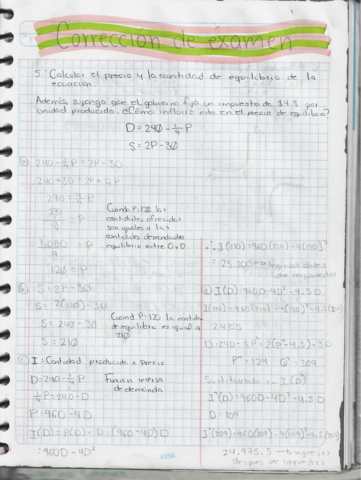 Corrección de examen
5. Calcular el precio y la cantidad de equilibrio de la
ecuación.
Además suponga que el gobierno fija un impuesto de $4.5 por
unidad producida. ¿Cómo influirá esto en el precio de equilibrio?
D = 240 - ¼P
S = 2P - 30
a) 240 - ¼P = 2P - 30
240 + 30 = 2P + ¼P
1080 = P
120 = P
Cuando P=120 las
cantidades ofrecidas
son iguales a las
cantidades demandadas
equilibrio entre O y D
b) S = 2P - 30
S = 2(120) - 30
S = 240 - 30
S = 210
Cuando P=120 la cantidad
de equilibrio es igual a
210
c) I = Cantidad producida × Precio
D = 240 - ¼P
¼P = 240 - D
P = 960 - 4D
Función inversa
de demanda
I(D) = P(D) · D = (960 - 4D) D
= 960D - 4D²
I(210) = 960(210) - 4(210)²
= 25,200 → Ingresos antes
de impuestos
d) I(D) = 960D - 4D² - 4.5D
I(210) = 960(210) - 4(210)² - 4.5(210)
24255
Sustituyendo en I(D)
I*(D) = 960D - 4D² - 4.5D
D = 209
I*(209) = 960(209) - 4(209)² - 4.5(209)
24,975.5 → Ingresos
después de impuestos